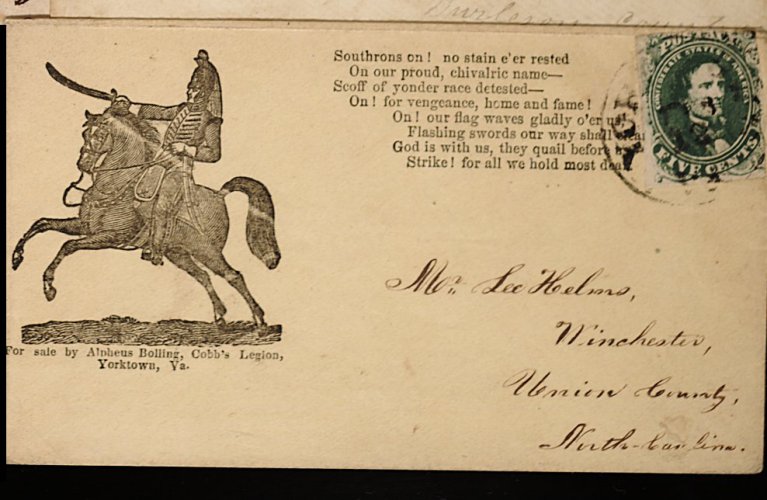 Burleson County
Southrons on! no stain e'er rested
On our proud, chivalric name—
Scoff of yonder race detested—
On! for vengeance, home and fame!
On! our flag waves gladly o'er us
Flashing swords our way shall clear
God is with us, they quail before
Strike! for all we hold most dear
POSTAGE
CONFEDERATE STATES OF AMERICA
FIVE CENTS
Mr. Lee Helms,
Winchester,
Union County,
North-Carolina.
For sale by Alpheus Bolling, Cobb's Legion,
Yorktown, Va.